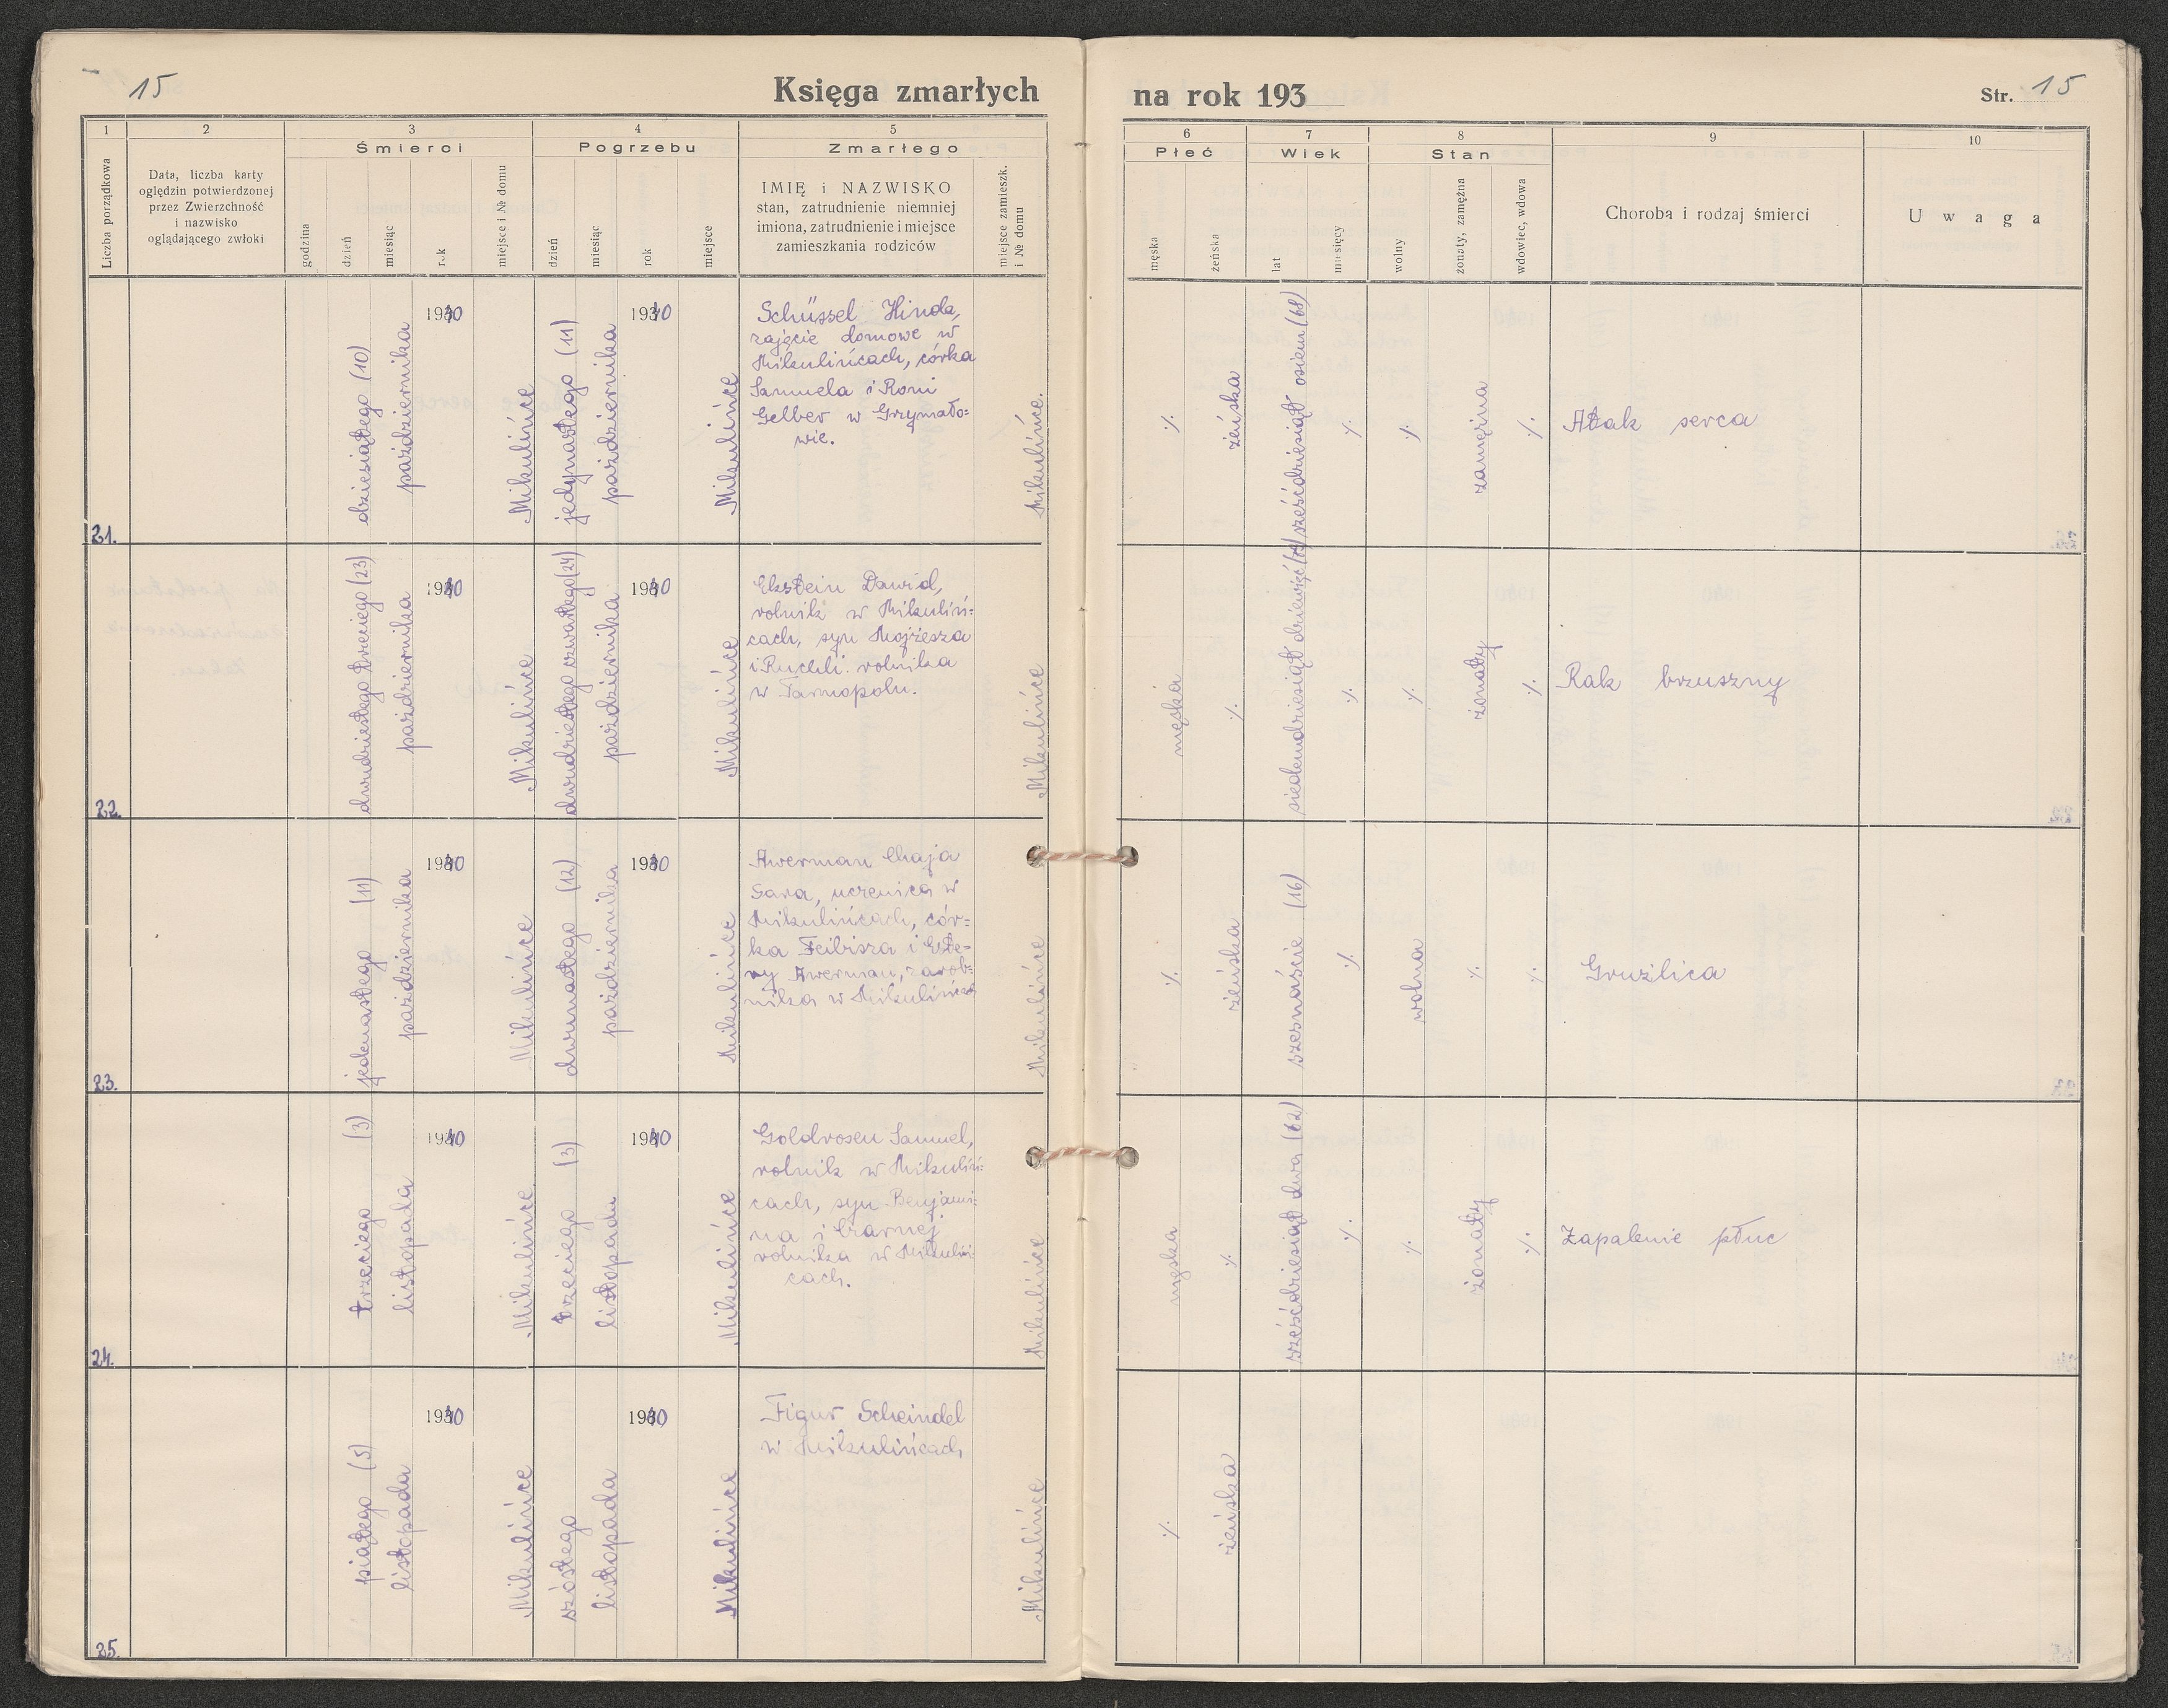 15
Księga zmarłych
na rok 193
Str. 15
1
2
3
4
5
6
7
8
9
10
Liczba porządkowa
Data, liczba karty
oględzin potwierdzonej
przez Zwierzchność
i nazwisko
oglądającego zwłoki
Śmierci
godzina
dzień
miesiąc
rok
miejsce i № domu
Pogrzebu
dzień
miesiąc
rok
miejsce
Zmarłego
IMIĘ i NAZWISKO
stan, zatrudnienie niemniej
imiona, zatrudnienie i miejsce
zamieszkania rodziców
miejsce zamieszk.
i № domu
Płeć
męska
żeńska
Wiek
lat
miesięcy
Stan
wolny
żonaty, zamężna
wdowiec, wdowa
Choroba i rodzaj śmierci
Uwaga
21.
dziesiątego (10)
października
1940
Mikulińce
jedynastego (11)
października
1940
Mikulińce
Schüssel Hinda,
zajęcie domowe w
Mikulińcach, córka
Samuela i Roni
Gelber w Grzymało=
wie.
Mikulińce.
./.
żeńska
sześćdziesiąt osiem (68)
./.
./.
zamężna
./.
Atak serca
22.
dwudziestego trzeciego (23)
października
1940
Mikulińce
dwudziestego czwartego (24)
października
1940
Mikulińce
Ekstein Dawid,
rolnik w Mikuliń=
cach, syn Mojżesza
i Ruchli rolnika
w Tarnopolu.
Mikulińce
męska
./.
siedemdziesiąt dziewięć (79)
./.
./.
żonaty
./.
Rak brzuszny
23.
jedenastego (11)
października
1940
Mikulińce
dwunastego (12)
października
1940
Mikulińce
Awerman Chaja
Sara, uczenica w
Mikulińcach, cór=
ka Feibisza i Este=
ry Awerman, zarob=
nika w Mikulińcach
Mikulińce
./.
żeńska
szesnaście (16)
./.
wolna
./.
./.
Gruźlica
24.
trzeciego (3)
listopada
1940
Mikulińce
trzeciego (3)
listopadu
1940
Mikulińce
Goldrosen Samuel,
rolnik w Mikuliń=
cach, syn Benjami=
na i Czarnej
rolnika w Mikuliń=
cach.
Mikulińce
męska
./.
sześćdziesiąt dwa (62)
./.
./.
żonaty
./.
Zapalenie płuc
25.
piątego (5)
listopada
1940
Mikulińce
szóstego
listopada
1940
Mikulińce
Figur Scheindel
w Mikulińcach
Mikulińce
./.
żeńska